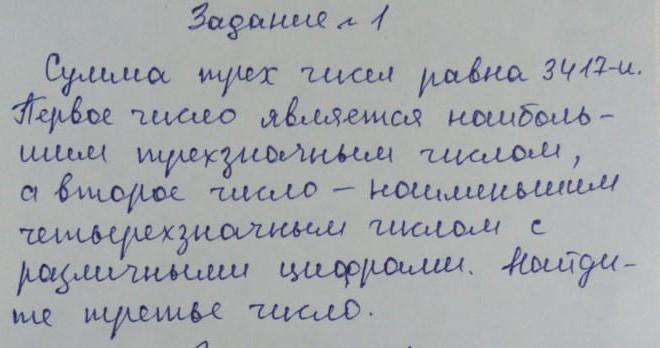 Задание № 1
Сумма трех чисел равна 3417-и.
Первое число является наиболь-
шим трехзначным числом,
а второе число – наименьшим
четырехзначным числом с
различными цифрами. Найди-
те третье число.